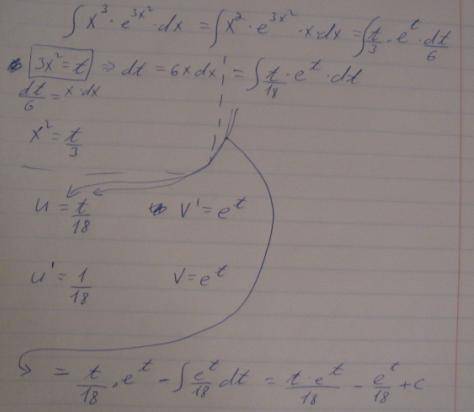 ∫ x³ · e^{3x²} · dx = ∫ x² · e^{3x²} · x · dx = ∫ t/3 · e^t · dt/6
3x² = t ⇒ dt = 6x dx = ∫ t/18 · e^t · dt
dt/6 = x · dx
x² = t/3
u = t/18 v' = e^t
u' = 1/18 v = e^t
= t/18 · e^t - ∫ e^t/18 dt = t · e^t/18 - e^t/18 + c